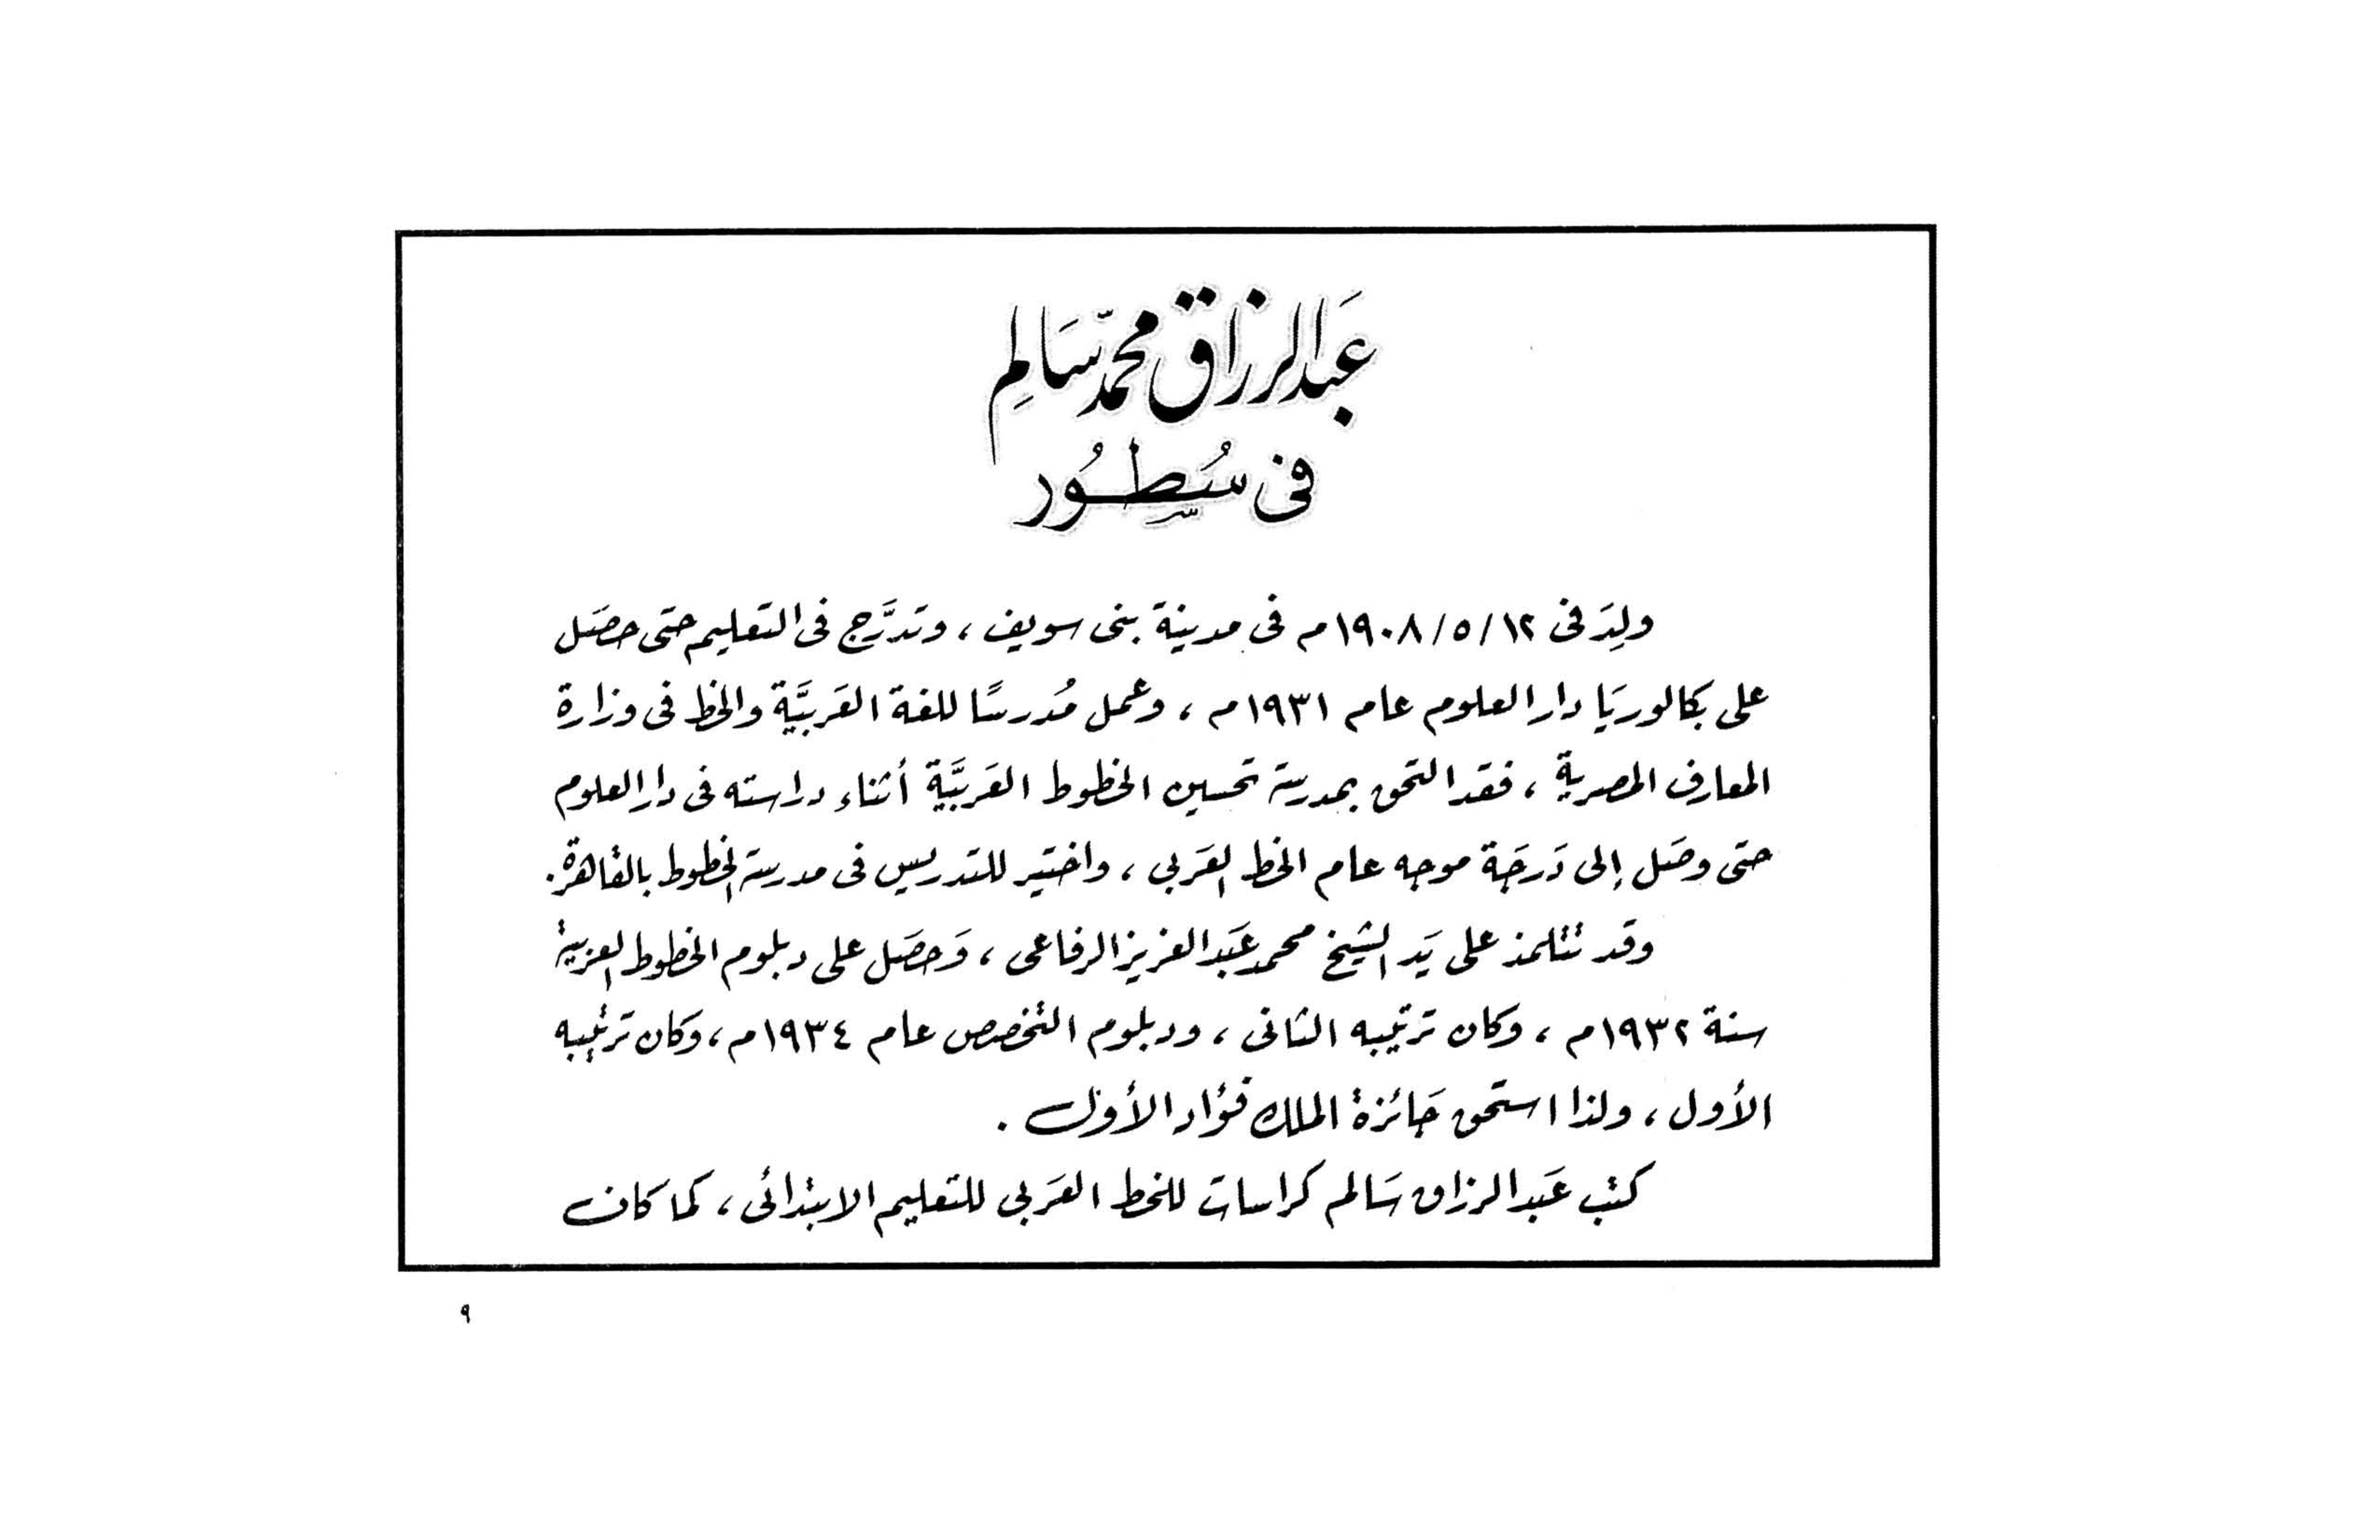 عبد الرزاق محمد سالم
فى سطور
ولِدَ فى ١٢/٥/١٩٠٨م فى مدينة بنى سويف، وتدرَّج فى التعليم حتى حصَل
على بكالوريَا دار العلوم عام ١٩٣١م، وعمل مُدرسًا للغة العَربيَّة والخط فى وزارة
المعارف المصرية، فقد التحق بمدرسة تحسين الخطوط العَربيَّة أثناء دراسته فى دار العلوم
حتى وصَل إلى دَرجَة موجه عام الخط العَربى، واختير للتدريس فى مدرسة الخطوط بالقاهرة.
وقد تتلمذ على يَد الشيخ محمد عَبد العزيز الرفاعى، وَحصَل على دبلوم الخطوط العربية
سنة ١٩٣٢م، وكان ترتيبه الثانى، ودبلوم التخصص عام ١٩٣٤م، وَكان ترتيبه
الأول، ولذا استحق جَائزة الملك فؤاد الأول.
كتب عَبد الرزاق سَالم كراسات للخط العَربى للتعليم الابتدائى، كما كان
٩